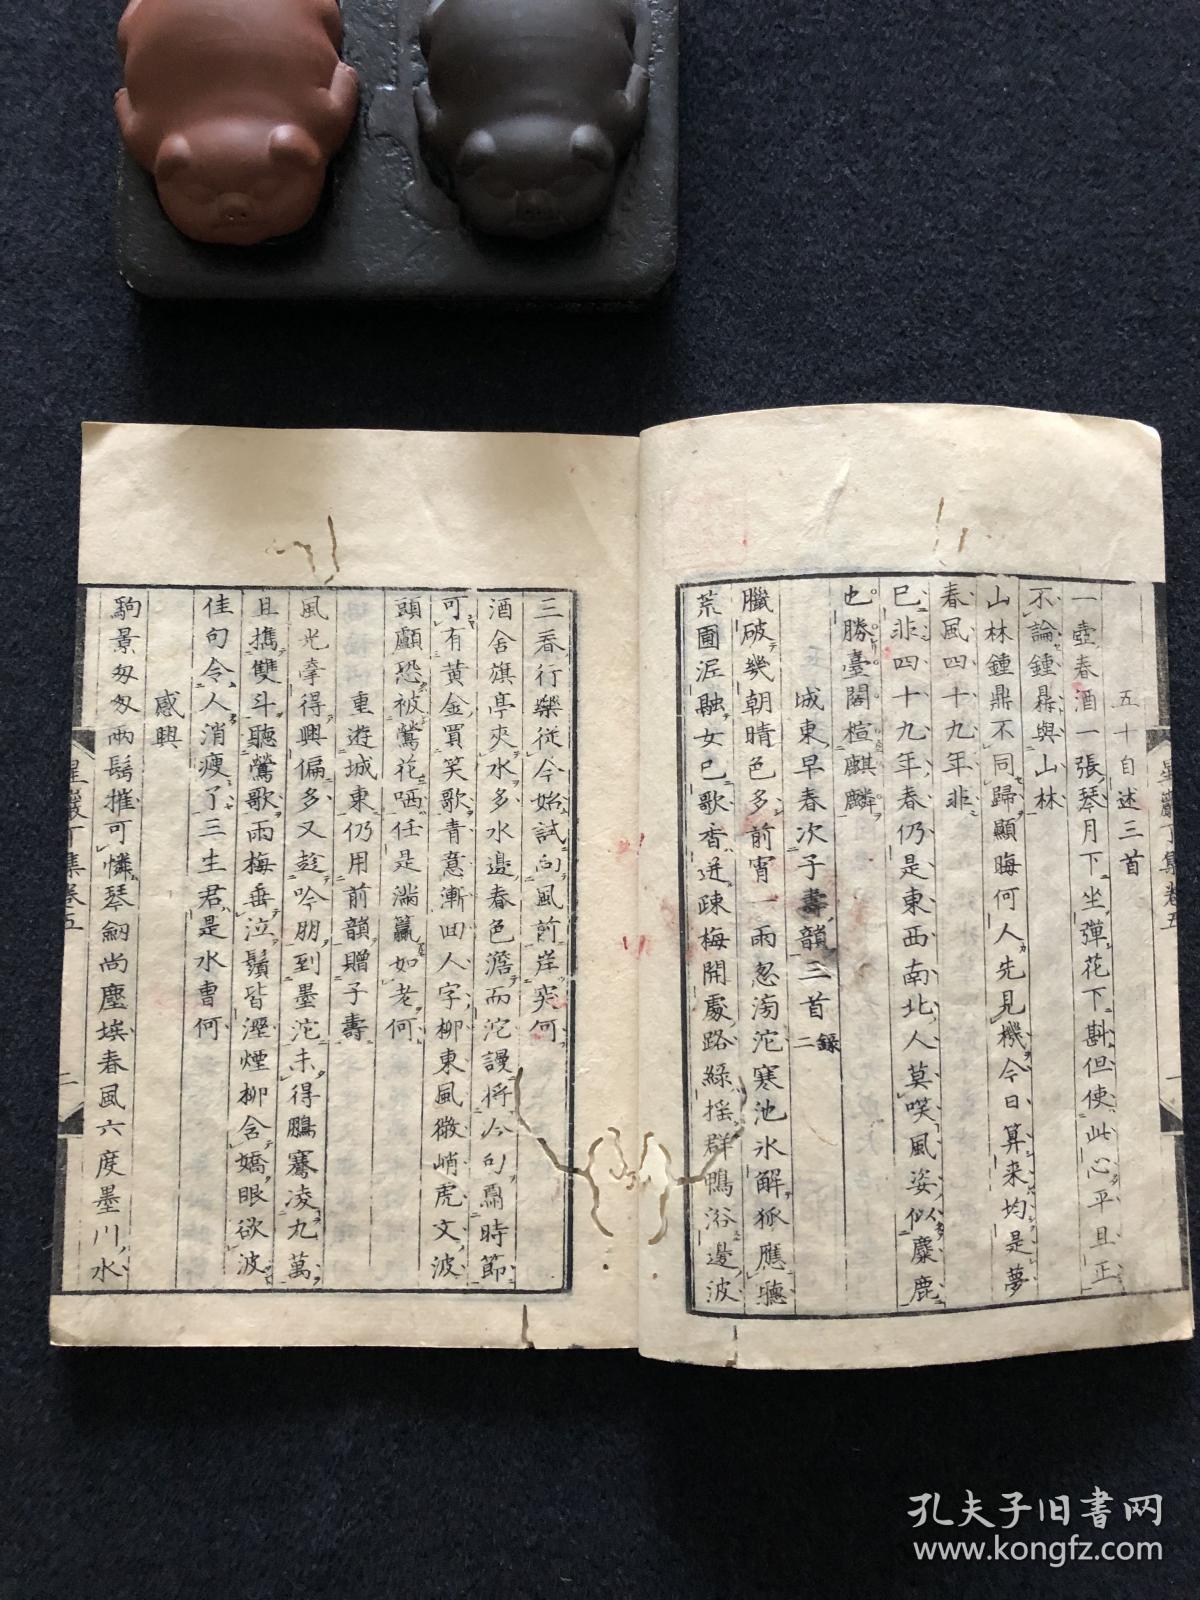 五十自述三首
一壺春酒一張琴月下坐彈花下斟但使此心平且正
不論鍾鼎與山林
山林鍾鼎不同歸顯晦何人先見機今日算来均是夢
春風四十九年非
已非四十九年春仍是東西南北人莫嘆風姿似麋鹿
也勝臺閣楦麒麟
城東早春次子壽韻三首 錄二
臘破幾朝晴色多前宵一雨忽滂沱寒池氷解狐應聽
荒圃泥融女已歌香迸疎梅開處路綠搖群鴨浴邊波
星巖丁集卷五
一
三春行樂従今始試向風前岸突何
酒舍旗亭夾水多水邊春色澹而沱謾將今句酬時節
可有黄金買笑歌青意漸回人字柳東風微峭虎文波
頭顱恐被鶯花哂任是滿籯如老何
重遊城東仍用前韻贈子壽
風光拿得興偏多又趁吟朋到墨沱未得鵬騫凌九萬
且携雙斗聽鶯歌雨梅垂泣鬚皆溼煙柳含嬌眼欲波
佳句令人消瘦了三生君是水曹何
感興
駒景匆匆兩鬂摧可憐琴劒尚塵埃春風六度墨川水
星巖丁集卷五
二
孔夫子旧書网
www.kongfz.com